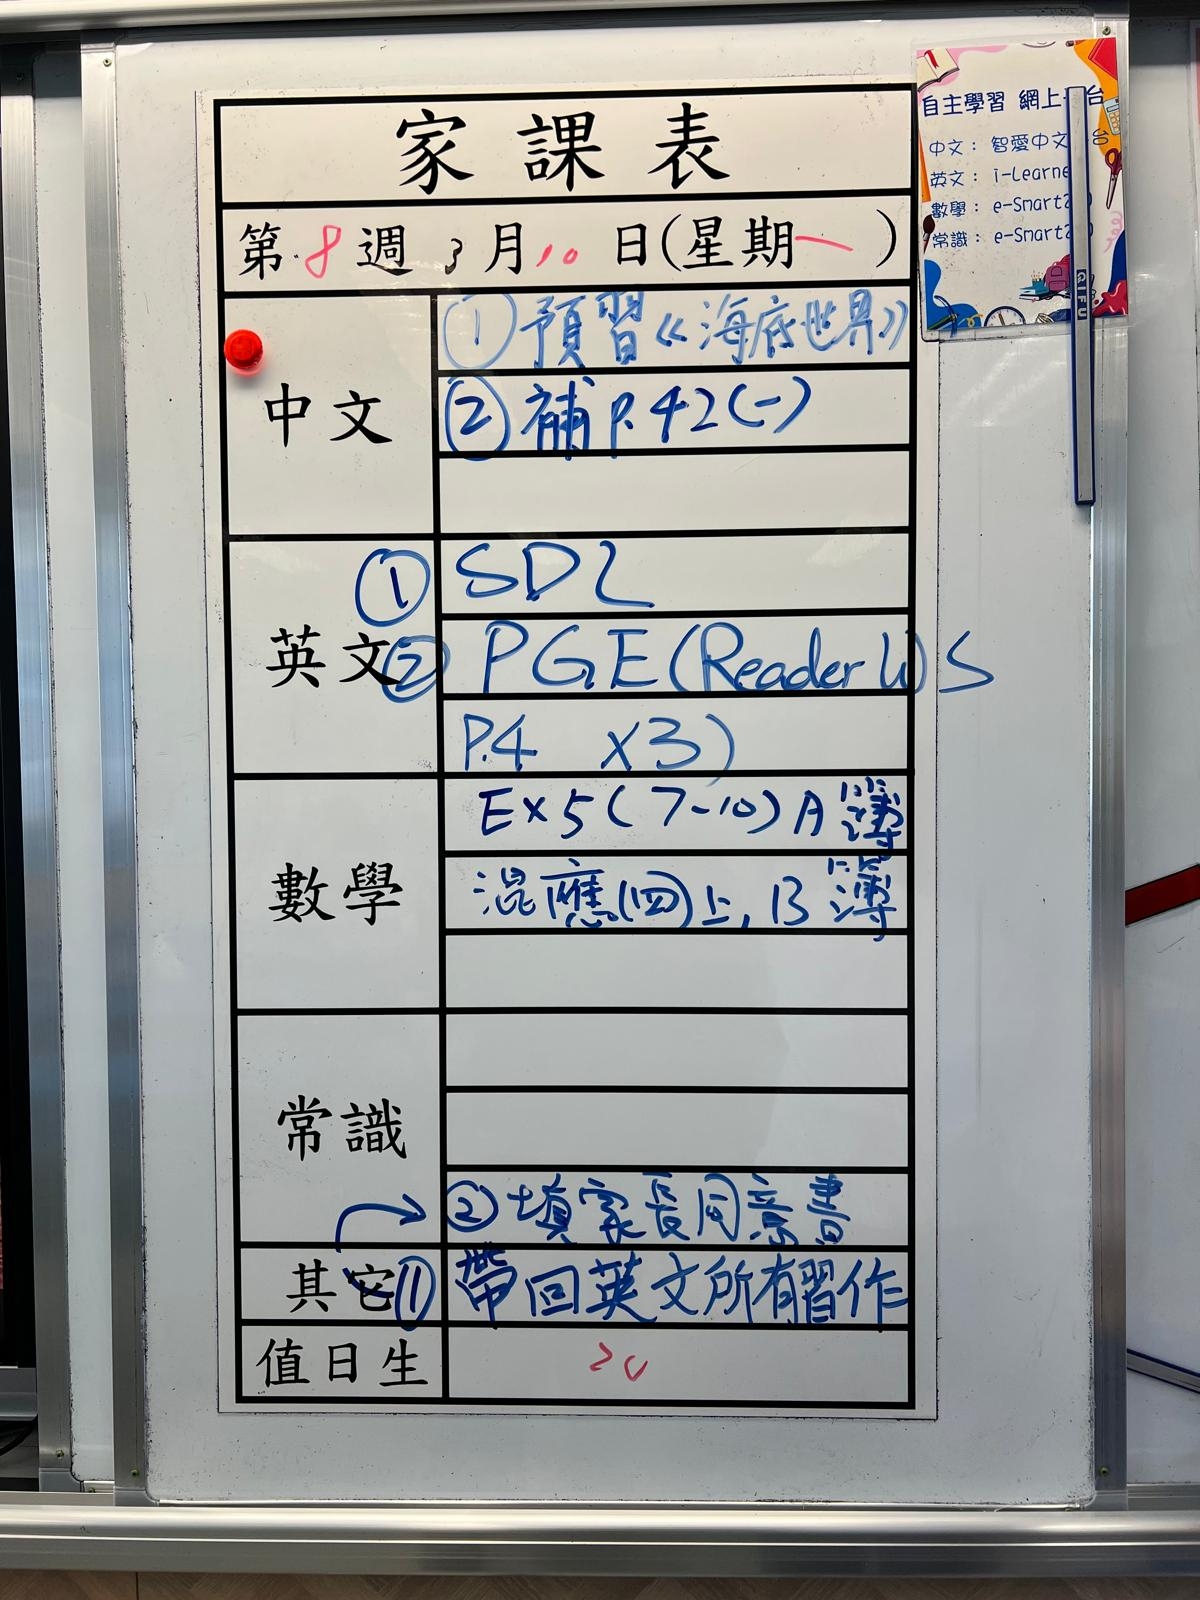 家課表
第8週3月10日(星期一)
中文
①預習《海底世界》
②補P.42(一)
英文
①SDL
②PGE(Reader WS
P.4 x3)
數學
Ex5(7-10)A簿
混應(四)上,B簿
常識
②填家長同意書
其它
①帶回英文所有習作
值日生
20
自主學習 網上 台
中文：智愛中文
英文：i-Learne
數學：e-Smart2
常識：e-Smart2
GIFU